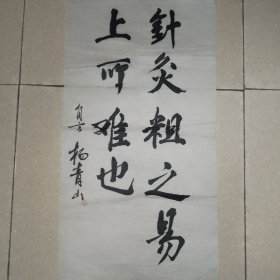 針灸粗之易
上所难也
杨青山